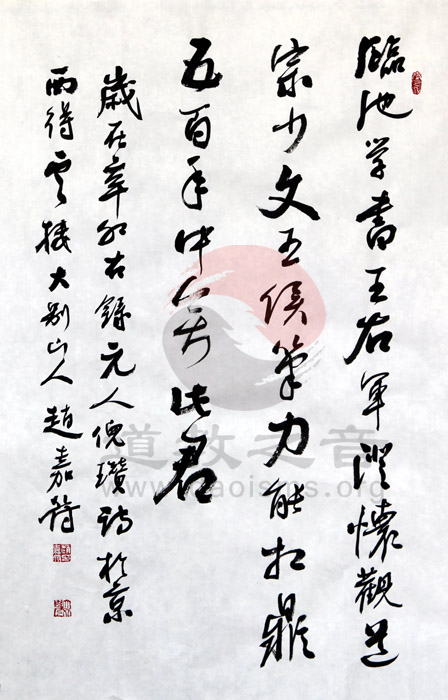 臨池学書王右軍澄懷觀道
宗少文王侯筆力能扛鼎
五百年中無此君
歲在辛卯右錄元人倪瓚詩於京
西得雲樓大別山人趙嘉
道教之音
www.daoisms.org